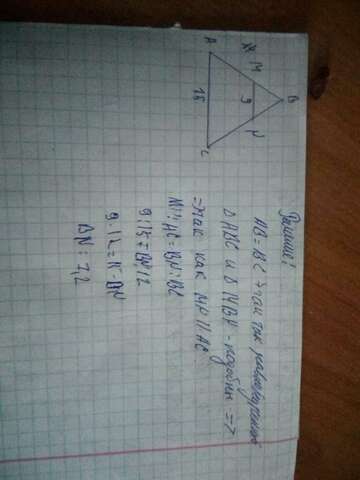 B
M
A
N
9
15
C
Решение:
AB = BC так как
Δ ABC и Δ MBN - подобны =>
=> так как MN || AC
MN : AC = BN : BC
9 : 15 = BN : 12
9 · 12 = 15 · BN
BN = 7,2